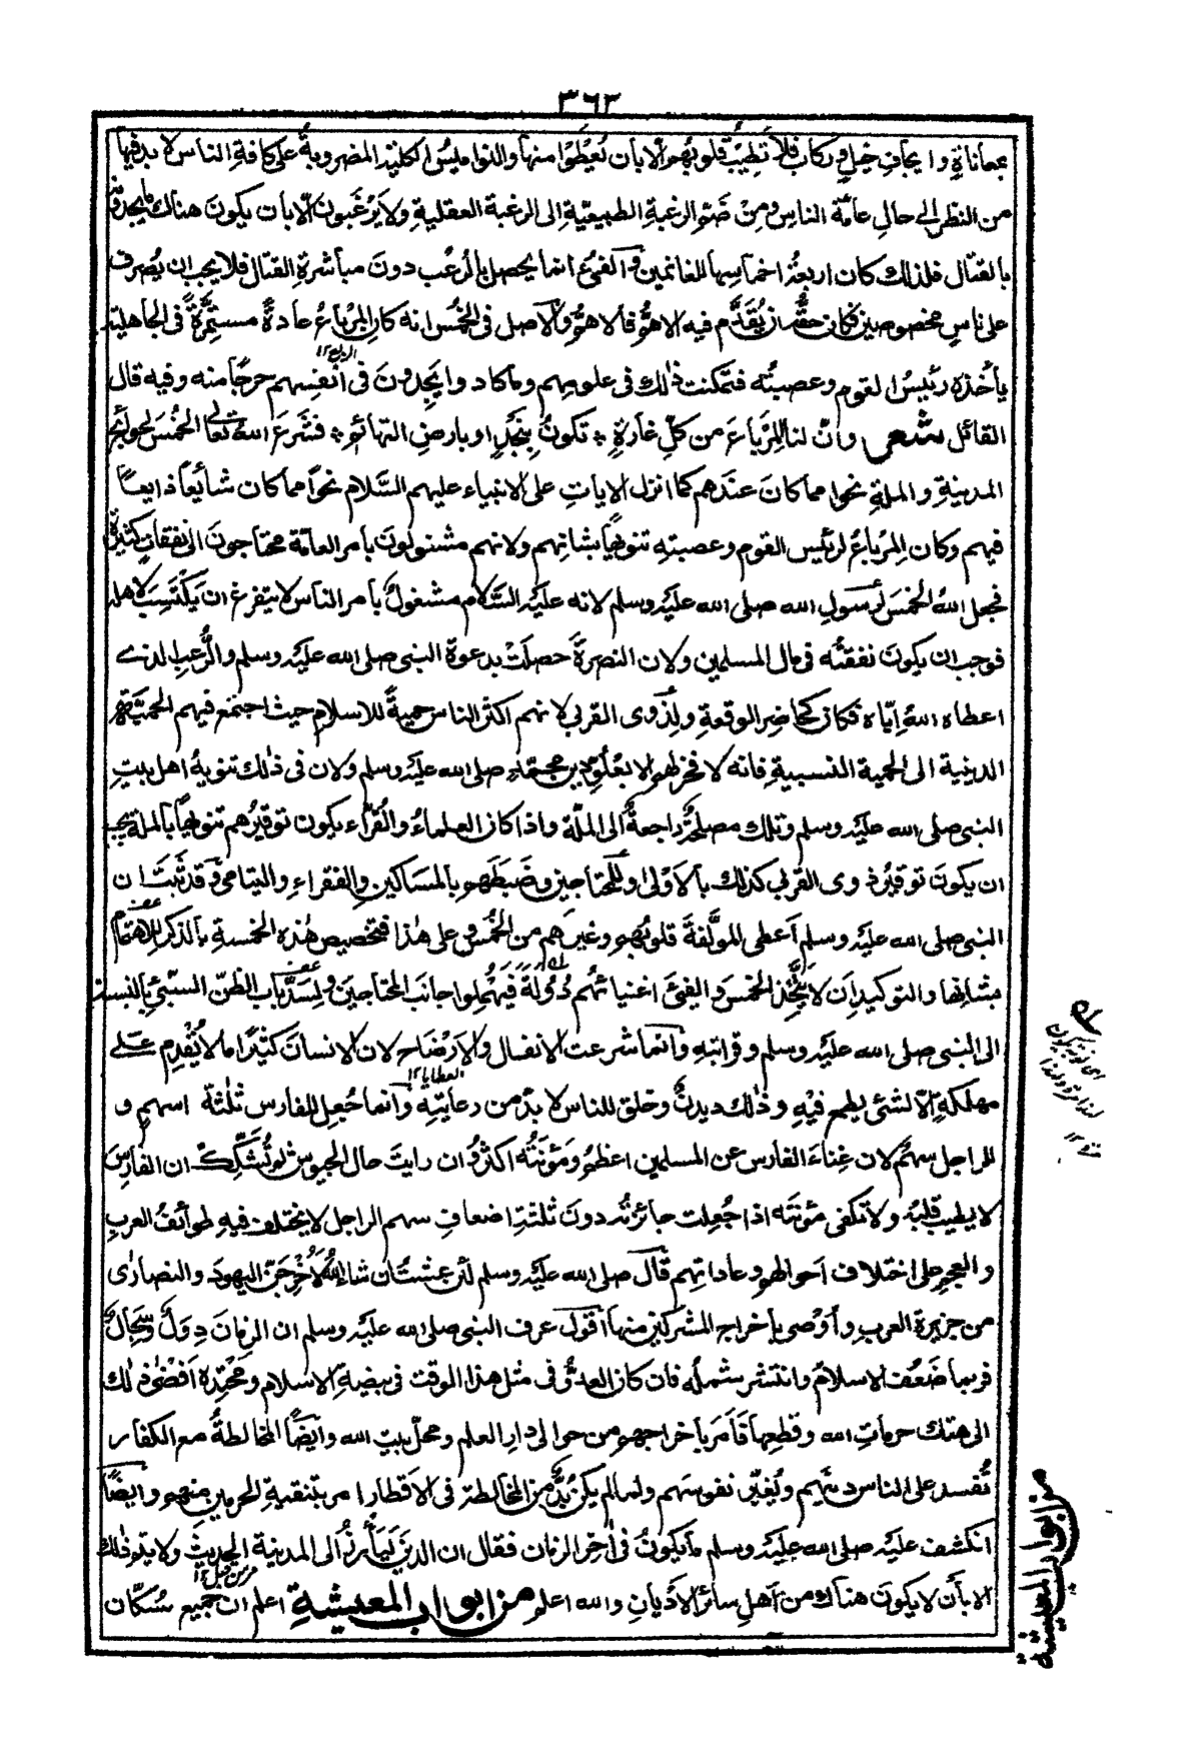 ٣٦٣
بمعاناةٍ وايجافِ خيلٍ وركاب فلا تطيبُ قلوبهم الا بأن يُعْطَوْا منها والنواميس الكلية المضروبة على كافة الناس لا بد فيها
من النظر الى حالِ عامّة الناس ومِنْ ضَمّ الرغبةِ الطبيعيّةِ الى الرغبة العقلية ولا يَرْغَبون الّا بأن يكونَ هناك ما يجدونه
بالقتال فلذلك كان اربعةُ اخماسِها للغانمين والفئُ انما يحصل بالرُّعب دونَ مباشرةِ القتال فلا يجب ان يُصرف
على ناسٍ مخصوصين فكان حقُّه ان يُقَدَّم فيه الاهمُّ فالاهمُّ والاصل فى الخُمُس انه كان المِرْباعُ عادةً مستمِرَّةً فى الجاهلية
يأخُذه رئيسُ القوم وعصبتُه فتمكنت ذلك فى علومهم وما كادوا يَجِدونَ فى انفسهم حرجًا منه وفيه قال
الربع ١٢
القائل شعر وانّ لنا المِرْباعَ من كلّ غارةٍ ٭ تكونُ بِنَجْدٍ او بارضِ التهائمِ ٭ فشَرعَ الله تعالى الخُمُسَ لحوائج
المدينةِ والملةِ نحوا مما كانَ عندهم كما انزل الايات على الانبياء عليهم السَّلام نحوًا مما كان شائعًا ذايعًا
فيهم وكان المِرْباعُ لرئيس القوم وعصبتِه تنويهًا بشانهم ولانهم مشغولون بأمر العامّة محتاجون الى نفقات كثيرة
فجعل اللهُ الخمسَ لرسولِ الله صلى الله عليه وسلم لانه عليه السَّلام مشغولٌ بأمر الناس لا يتفرغ ان يَكْتَسِبَ لاهله
فوجب ان يكونَ نفقتُه فى مال المسلمين ولان النصرةَ حصلَتْ بدعوة النبى صلى الله عليه وسلم والرُّعبِ الذے
اعطاه اللهُ ايّاه فكان كحاضِرِ الوقعةِ ولِذَوى القربى لانهم اكثر الناس حميةً للاسلامِ حيث اجتمَع فيهم الحميّة
الدينية الى الحمية النسبيةِ فانه لا فخر لهم الا بعُلُوِّ دين محمد صلى الله عليه وسلم ولان فى ذٰلك تنويهُ اهل بيتِ
النبى صلى الله عليه وسلم وتلك مصلحةٌ راجعةٌ الى الملّة واذا كان العلماءُ والقُرّاء يكون توقيرُهم تنويهًا بالملة يجب
ان يكونَ توقيرُ ذوى القربى كذلك بالاَوْلى وللمحتاجين وضَبَطَهم بالمسَاكين والفقراءِ واليتامى وقد ثَبَتَ ان
النبى صلى الله عليه وسلم اَعطى المؤلَّفةَ قلوبُهم وغيرَهم من الخُمُس وعلى هٰذا فتخصيص هٰذه الخمسةِ بالذكر للاهتمام
بشانها والتوكيد اَن لا يَتَّخِذَ الخمسَ والفئَ اغنيائُهم دُولَةً فيُهمِلوا جانبَ المحتاجين ولِسَدِّ باب الظنّ السّيّئِ بالنسبة
الى النبى صلى الله عليه وسلم وقرابتِه وانّما شرعت الانفال والاَرْضَاح لان الانسانَ كثيرًا ما لا يُقْدِم علے
مهلكةٍ الّا لشئى يطمع فيْهِ وذٰلك ديدنٌ وخلق للناس لا بدّ من رعايتِه وانما جُعِل للفارس ثلٰثة اسهمٍ و
العطايا ١٢
للراجل سهمٌ لان غِناءَ الفارس عن المسلمين اعظمُ ومَؤُنتُه اكثرُ وان رايتَ حال الجيوش لم تَشُكَّ ان الفارسَ
لا يطيب قلبُه ولا تكفى مؤنتَه اذا جُعِلت جائزتُه دونَ ثلثةِ اضعافِ سهم الراجل لا يختلف فيهِ طوائفُ العربِ
والعجمِ على اختلاف اَحوالهم وعاداتِهم قال صلى الله عليه وسلم لَئن عِشتُ ان شاء اللهُ لاُخْرِجَنَّ اليهودَ والنصارٰى
من جزيرة العرب وأوْصى بإخراج المشركين منها اقول عرف النبى صلى الله عليه وسلم ان الزمانَ دِوَلٌ وسِجالٌ
فربما ضَعُفَ الاسلامُ وانتشر شملُه فان كان العدوُّ فى مثل هذا الوقت فى بيضةِ الاسلام ومَحْتِدِه اَفضٰى ذٰلك
الى هتك حرماتِ الله وقطعِها فاَمَر بأخراجهم من حوالى دارِ العلم ومحلّ بيتِ الله وايضًا المخالطةُ مع الكفار
تُفسد على الناس دينَهم وتُغيّر نفوسَهم ولما لم يكن بُدٌّ من المخالطة فى الاَقطار امر بتنقيةِ الحرمين منهم وايضًا
انكشف عليه صلى الله عليه وسلم ما يكونُ فى اٰخِر الزمان فقال ان الدينَ لَيَأرِزُ الى المدينة الحديثَ ولا يتم ذٰلك
الا بأن لا يكونَ هناك من اَهلِ سائر الاَديانِ والله اعلم من ابواب المعيشةِ اعلم ان جميع سُكّان
من ابواب المعيشة